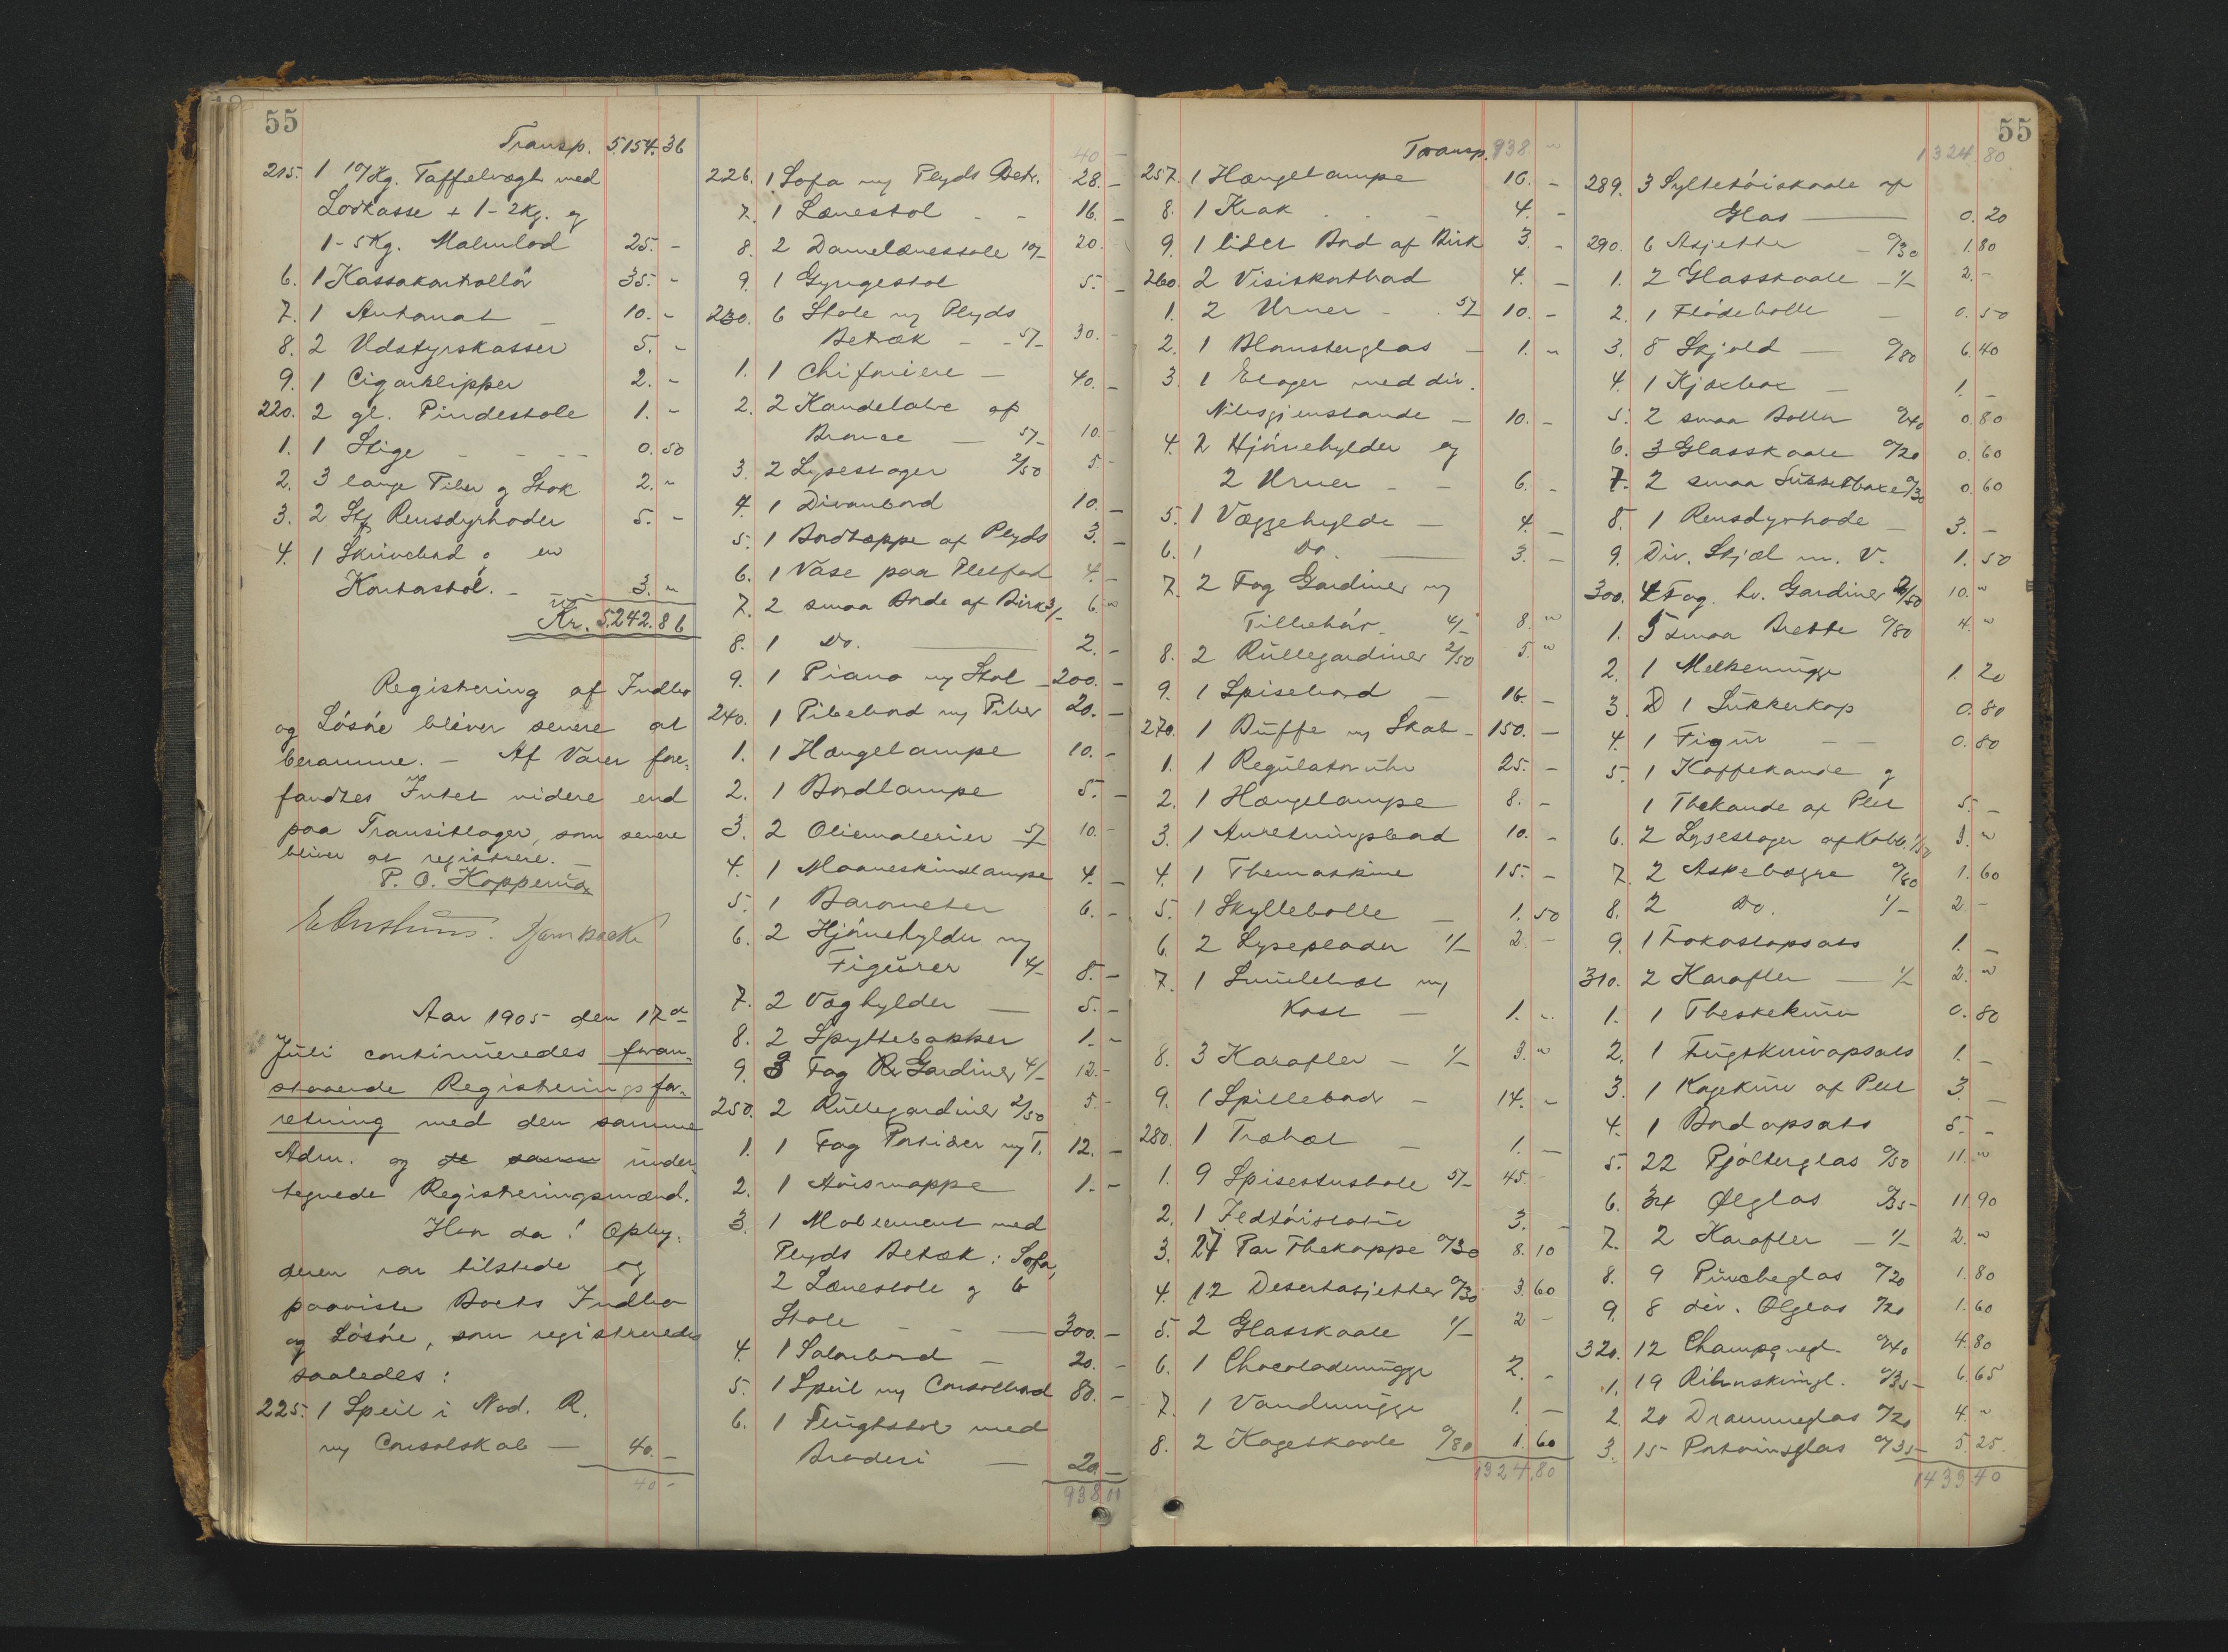 55
Transp. 5154.36
215. 1 10/Kg. Taffelvægt med
Lodkasse + 1-2Kg. og
1-5Kg. Malmlod 25. -
6. 1 Kassakontrollør 35. -
7. 1 Automat 10. -
8. 2 Udstyrskasser 5. -
9. 1 Cigarklipper 2. -
220. 2 gl. Pindestole 1. -
1. 1 Stige - - - - 0.50
2. 3 lange Piber og Stok 2. "
3. 2 Stk Rensdyrhoder 5. -
4. 1 Skrivebord og en
Kontorstol. - 3. "
Kr. 5242.86
Registrering af Indbo
og Lösöre bliver senere at
beramme. - Af Varer fore-
fandtes Intet videre end
paa Transitlager, som senere
bliver at registrere. -
P. O. Kopperud
Aar 1905 den 17de
Juli continueredes foran-
staaende Registreringsfor-
retning med den samme
Adm. og de samme under-
tegnede Registreringsmænd.
Hvor da! Opby-
deren var tilstede og
paaviste Boets Indbo
og Lösöre, som registreredes
saaledes:
225. 1 Speil i Nod. R.
m/ Consolskab - 40. -
40 -
40 -
226. 1 Sofa m/ Plyds Betr. 28. -
7. 1 Lænestol - - 16. -
8. 2 Damelænestole 10/- 20. -
9. 1 Gyngestol 5. -
230. 6 Stole m/ Plyds
Betræk - - 5/- 30. -
1. 1 Chifoniere - 40. -
2. 2 Kandelabre af
Bronce - 5/- 10. -
3. 2 Lysestager 2/50 5. -
4. 1 Divanbord 10. -
5. 1 Bordteppe af Plyds 3. -
6. 1 Vase paa Pletfod 4. -
7. 2 smaa Borde af Birk 3/- 6. "
8. 1 Do. 2. -
9. 1 Piano m/ Stol - 200. -
240. 1 Pibebord m/ Piber 20. -
1. 1 Hængelampe 10. -
2. 1 Bordlampe 5. -
3. 2 Oliemalerier 5/- 10. -
4. 1 Maaneskindlampe 4. -
5. 1 Barometer 6. -
6. 2 Hjörnehylder m/
Figürer 4/- 8. -
7. 2 Væghylder - 5. -
8. 2 Spyttebakker 1. -
9. 3 Fag Gardiner 4/- 12. -
250. 2 Rüllegardiner 2/50 5. -
1. 1 Fag Portierer m/ T. 12. -
2. 1 Avismappe 1. -
3. 1 Moblement med
Plyds Betræk: Sofa,
2 Lænestole og 6
Stole - - - 300. -
4. 1 Salonbord - 20. -
5. 1 Speil m/ Consolbord 80. -
6. 1 Flugtstol med
Broderi - 20. -
938 "
Transp. 938. "
257. 1 Hængelampe 16. -
8. 1 Krak . . - 4. -
9. 1 lidet Bord af Birk 3. -
260. 2 Visiskortbad 4. -
1. 2 Urner - . 5/- 10. -
2. 1 Blomsterglas - 1. "
3. 1 Etager med div.
Nipsgjenstande - 10. -
4. 2 Hjörnehylder og
2 Urner - - 6. -
5. 1 Væggehylde - 4. -
6. 1 Do. 3. -
7. 2 Fag Gardiner m/
Tilbehör. 4/- 8. "
8. 2 Rüllegardiner 2/50 5. "
9. 1 Spisebord - 16. -
270. 1 Büffe m/ Skab - 150. -
1. 1 Regülatoruhr 25. -
2. 1 Hængelampe 8. -
3. 1 Anretningsbord 10. -
4. 1 Themaskine 15. -
5. 1 Skyllebolle - 1.50
6. 2 Lyseplader 1/- 2. -
7. 1 Smülebræt m/
Kost - 1. -
8. 3 Karafler - 1/- 3. "
9. 1 Spillebord - 14. -
280. 1 Træbræt - 1. -
1. 9 Spisestustole 5/- 45. -
2. 3. -
3. 27 Par Thekoppe 0/30 8.10
4. 12 Desertasjetter 0/30 3.60
5. 2 Glasskaale 1/- 2. -
6. 1 Chocolademügge 2. -
7. 1 Vandmügge 1. -
8. 2 Kageskaale 0/80 1.60
1324.80
55
1324.80
289. 3 Syltetöiskaale af
Glas 0.20
290. 6 Asjetter - 0/30 1.80
1. 2 Glasskaale - 1/- 2. -
2. 1 Flödebolle - 0.50
3. 8 Skjold - 0/80 6.40
4. 1 Kjæxbox - 1. -
5. 2 smaa Boller 0/40 0.80
6. 3 Glasskaale 0/20 0.60
7. 2 smaa 0/30 0.60
8. 1 Rensdyrhode - 3. -
9. Div. Skjæl m. V. 1.50
300. 4 Fag hv. Gardiner 2/50 10. "
1. 5 smaa Brette 0/80 4. "
2. 1 Melkemügge 1.20
3. 1 Sükkerkop 0.80
4. 1 Figür - - 0.80
5. 1 Kaffekande og
1 Thekande af Plet 5. -
6. 2 Lysestager af Kobb. 1/50 3. "
7. 2 Askebægre 0/80 1.60
8. 2 Do. 1/- 2. -
9. 1 Frokostopsats 1. -
310. 2 Karafler - 1/- 2. "
1. 1 Theskekürv 0.80
2. 1 Frügtknivopsats 1. -
3. 1 Kagekürv af Plet 3. -
4. 1 Bordopsats 5. -
5. 22 Pjolterglas 0/50 11. "
6. 34 Ølglas 0/35 11.90
7. 2 Karafler - 1/- 2. "
8. 9 Püncheglas 0/20 1.80
9. 8 div. Ølglas 0/20 1.60
320. 12 Champagnegl. 0/40 4.80
1. 19 Rhinskvingl. 0/35 6.65
2. 20 Drammeglas 0/20 4. "
3. 15 Portvinsglas 0/35 5.25.
1433.40